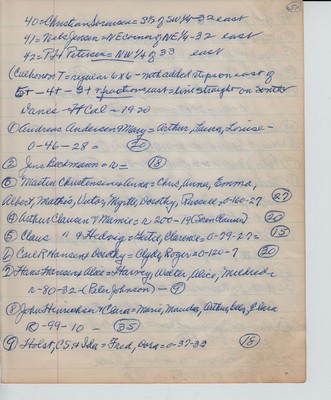 40= Christian Sorensen = S½ of SW¼-32 east
41= Nels Jensen = NE corner of NE¼-32 east
42= P.H. Petersen = NW¼ of 33 east
T = regular 6x6 - not added strip on east of
5T - 4T - 3 + fractions east = line straight on
Danes - H Cal - 1920
① Andreas Andersen & Mary = Arthur, Laura, Louise -
0-46-28 = 20
② Jens Beckmann = r= 18
③ Martin Christensen & Anna = Chris, Anna, Emma,
Albert, Mathis, Victor, Myrtle, Dorothy, Russell, 0-160-27 27
④ Arthur Clausen & Mamie = r 200-19 20
⑤ Claus " & Hedvig = Hertel, Clarence = 0-79-27 = 15
⑥ Carl F Hansen & Dorothy = Clyde, Roger = 0-120-7 20
⑦ Hans Hansen & Alice = Harvey, Walter, Alice, Mildred =
r-80-32 - (Peter Johnson) - 9
⑧ John Henricksen & Clara = Marie, Arthur, Clara
-99-10 - 35
⑨ Holst, C.S. & Ida = Fred, Cora = 0-37-32 18